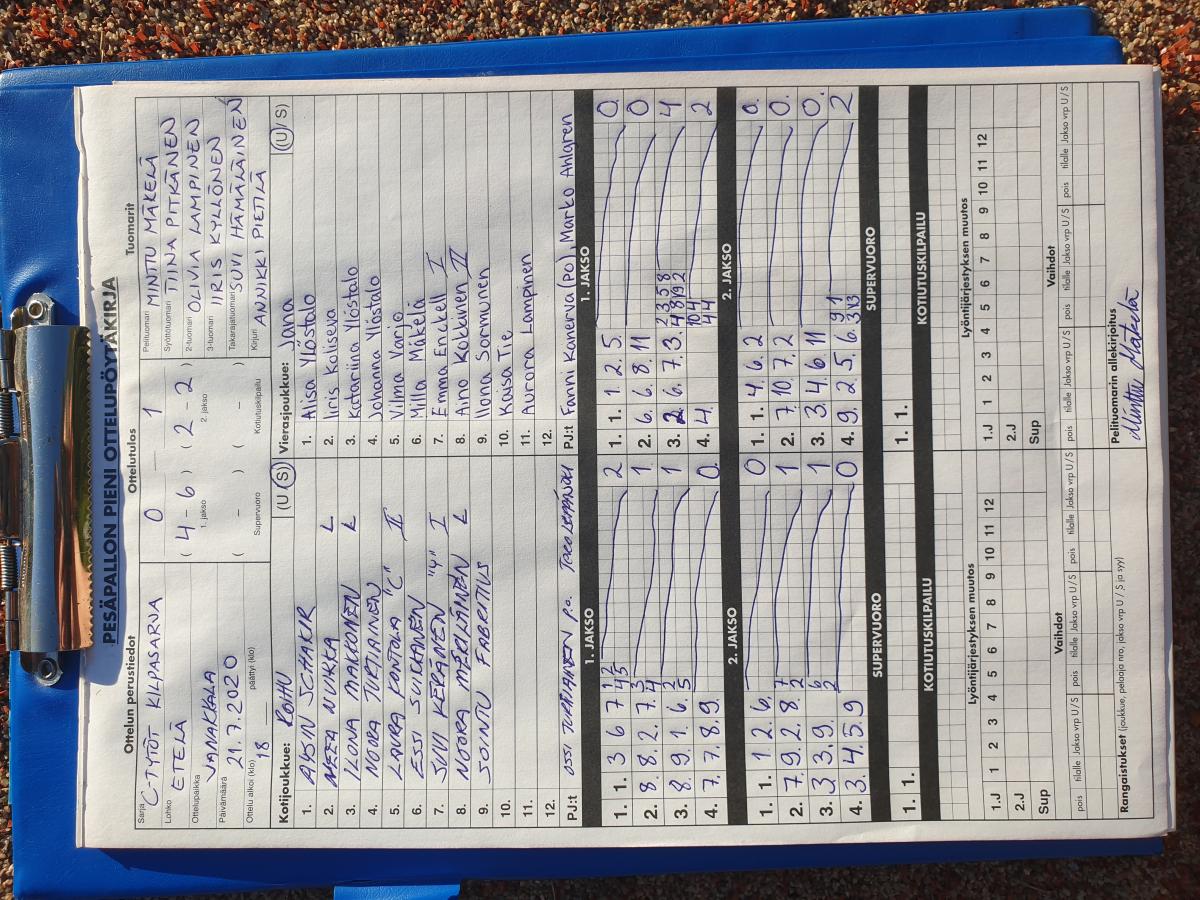 PESÄPALLON PIENI OTTELUPÖYTÄKIRJA
Ottelun perustiedot
Sarja C-TYTÖT KILPASARJA
Lohko ETELÄ
Ottelupaikka VANAKKALA
Päivämäärä 21.7.2020
Ottelu alkoi (klo) 18 päättyi (klo)
Ottelutulos
0 – 1
( 4 - 6 ) ( 2 - 2 )
1. jakso 2. jakso
( – ) ( – )
Supervuoro Kotiutuskilpailu
Tuomarit
Pelituomari MINTTU MÄKELÄ
Syöttötuomari TIINA PITKÄNEN
2-tuomari OLIVIA LAMPINEN
3-tuomari IIRIS KYLLÖNEN
Takarajatuomari SUVI HÄMÄLÄINEN
Kirjuri ANNIKKI PIETILÄ
Kotijoukkue: ROIHU (U / S)
1. AYSIN SCHAKIR
2. NEEA NUIKKA L
3. ILONA MAKKONEN L
4. NOORA TURTIAINEN
5. LAURA KONTOLA "C" II
6. ESSI SUIKANEN
7. SUVI KERÄNEN "4" I
8. NOORA MERILÄINEN L
9. SOINTU FABRITIUS
10.
11.
12.
PJ:t OSSI TURTIAINEN P.O.
Vierasjoukkue: Jana (U / S)
1. Alisa Ylöstalo
2. Iiris Koliseva
3. Katariina Ylöstalo
4. Johanna Ylöstalo
5. Vilma Varjo
6. Milla Mäkelä
7. Emma Enckell I
8. Aino Kokkinen II
9. Ilona Sormunen
10. Kaisa Tie
11. Aurora Lampinen
12.
PJ:t Fanni Kanerva (PO), Marko Ahlgren
1. JAKSO
1. 1. 3 6 7 1 2 4 5 2
2. 8. 8. 2. 7. 3 4 1
3. 8. 9 1. 6. 2 5 1
4. 7. 7. 8. 9. 0.
2. JAKSO
1. 1. 1. 2. 6. 0
2. 7. 9. 2. 8. 7 2 1
3. 3 3. 9. 6 2 1
4. 3. 4. 5. 9 0
SUPERVUORO
1. 1.
KOTIUTUSKILPAILU
1. JAKSO
1. 1. 1 2. 5. 0.
2. 6. 6. 8. 11 0
3. 2. 6. 7. 3. 2 3 5 8 4 8 19 2 4
4. 4. 10 4 4 4 2
2. JAKSO
1. 1. 4. 6. 2 0.
2. 7. 10. 7. 2 0.
3. 3. 4. 6 11 0.
4. 9. 2 5. 6. 9 1 3 13 2
SUPERVUORO
1. 1.
KOTIUTUSKILPAILU
Lyöntijärjestyksen muutos
1.J 1 2 3 4 5 6 7 8 9 10 11 12
2.J
Sup
Vaihdot
pois tilalle Jakso vrp U/S pois tilalle Jakso vrp U/S pois tilalle Jakso vrp U/S
Lyöntijärjestyksen muutos
1.J 1 2 3 4 5 6 7 8 9 10 11 12
2.J
Sup
Vaihdot
pois tilalle Jakso vrp U/S pois tilalle Jakso vrp U/S pois tilalle Jakso vrp U/S
Rangaistukset (joukkue, pelaaja nro, jakso vrp U / S ja syy)
Pelituomarin allekirjoitus
Minttu Mäkelä